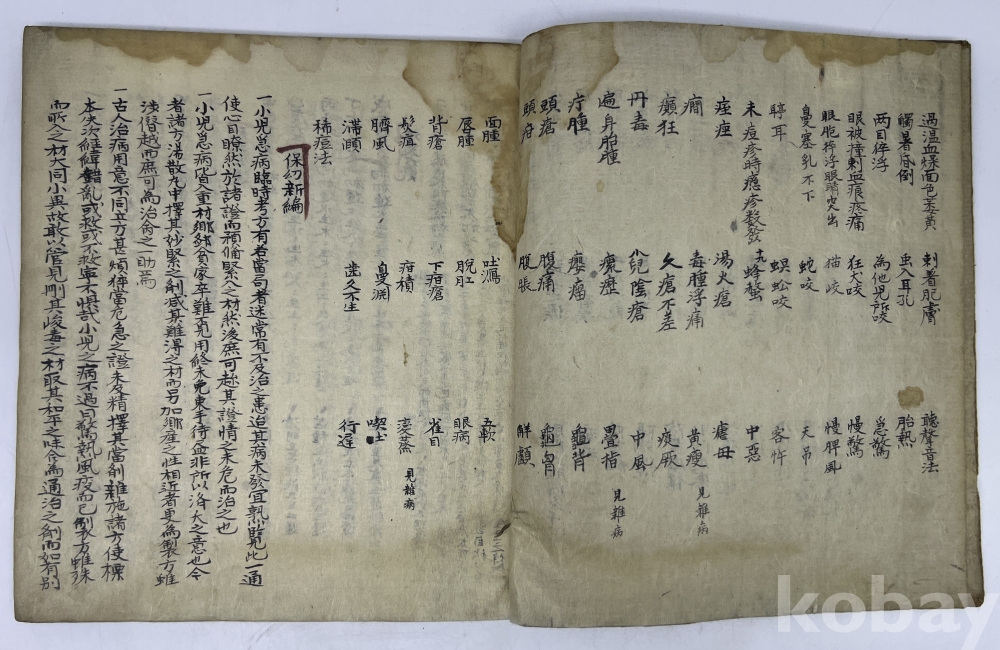 過溫血燥面色萎黃 刺着肌膚 聽聲音法
觸暑昏倒 虫入耳孔 胎熱
兩目锌浮 為他兒所咬 急驚
眼被撞刺血痕疼痛 狂犬咬 慢驚
眼胞锌浮眼睛突出 猫咬 慢脾風
鼻塞乳不下 蛇咬 天吊
聤耳 蜈蚣咬 客忤
未痘疹時癮疹数發 蜂螫 中惡
痤痱 湯火瘡
癇 毒腫浮痛 黃瘦 見雜病
癲狂 久瘡不差 痰厥
丹毒 小兒陰瘡 中風
遍身胕腫 瘰癧 疊指 見雜病
疔腫 癭瘤 龜背
頭瘡 腹痛 龜胷
頭疳 腹脹 解顱
面腫 吐瀉 五軟
唇腫 脫肛 眼病
背瘡 下疳瘡 雀目
髮㿈 疳積 變蒸 見雜病
臍風 鼻淵 喫土
滯頤 齒久不生 行遲
稀痘法
保幼新編
一小児急病臨時考方有若當局者迷常有不及治之患迨其病未發宜熟覽此一通
使心目瞭然於諸證而預備緊入之材然後庶可趁其證情之未危而治之也
一小児急病皆入重材鄉外貧家卒難覓用終未免束手待斃非所以洛大之意也今
者諸方湯散九中擇其妙緊之劑减其難得之材而另加鄉産之性相近者更為製方雖
涉僣越而庶可為治命之一助焉
一古人治病用意不同立方甚煩猝當危急之證未及精擇其當劑雜施諸方使標
本失次經緯錯亂或救或不救寧不惧哉小児之病不過曰驚熱風疫而已製方雖殊
而所入之材大同小異故敢以管見刪其峻毒之材取其和平之味合為通治之劑而如有別
kobay